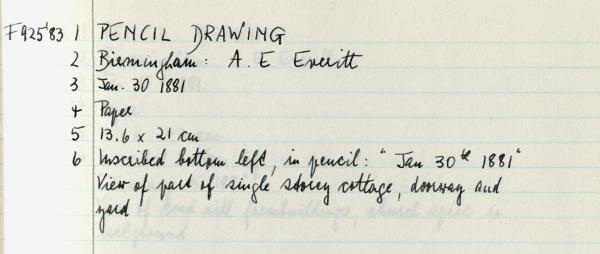 F925'83 1 PENCIL DRAWING
2 Birmingham: A. E Everitt
3 Jan. 30 1881
4 Paper
5 13.6 x 21 cm
6 Inscribed bottom left, in pencil: "Jan 30th 1881"
View of part of single storey cottage, doorway and
yard